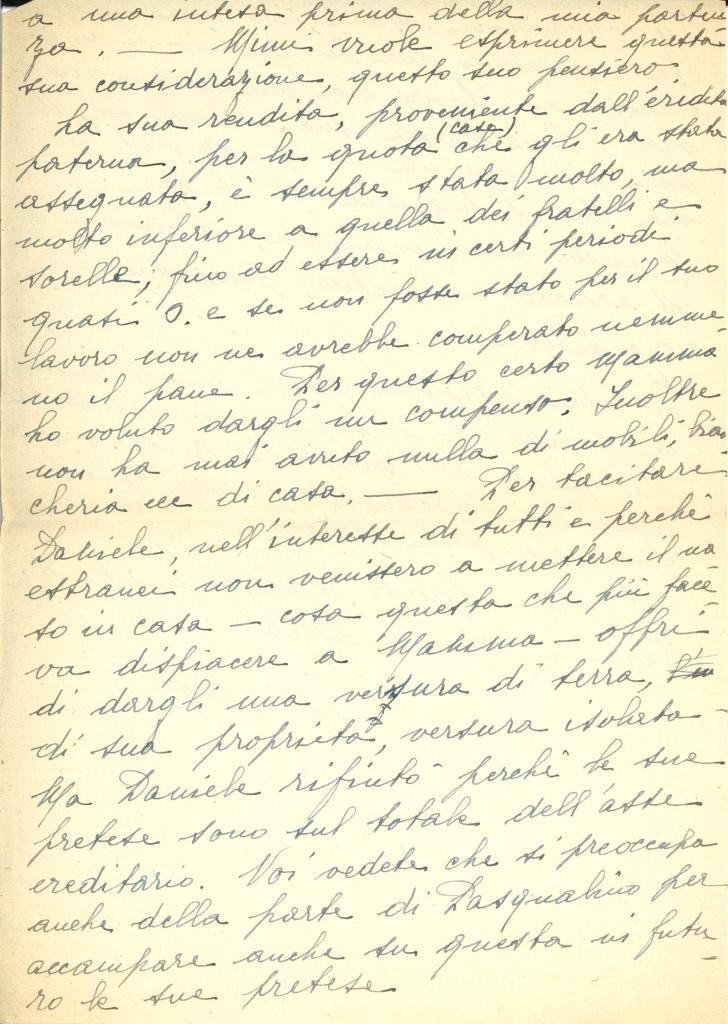 a una intesa prima della mia parten
za. — Mimi vuole esprimere questa
sua considerazione, questo suo pensiero.
La sua rendita, proveniente dall'eredità
paterna, per la quota (casa) che gli era stata
assegnata, è sempre stata molto, ma
molto inferiore a quella dei fratelli e
sorelle; fino ad essere in certi periodi
quasi 0. e se non fosse stato per il suo
lavoro non ne avrebbe comperato nemme
no il pane. Per questo certo Mamma
ha voluto dargli un compenso. Inoltre
non ha mai avuto nulla di mobili, bian
cheria ecc di casa. — Per tacitare
Daniele, nell'interesse di tutti e perchè
estranei non venissero a mettere il na
so in casa — cosa questa che più face
va dispiacere a Mamma — offrì
di dargli una versura di terra,
di sua proprietà, versura isolata —
Ma Daniele rifiutò perchè le sue
pretese sono sul totale dell'asse
ereditario. Voi vedete che si preoccupa
anche della parte di Pasqualino per
accampare anche su questa in futu
ro le sue pretese